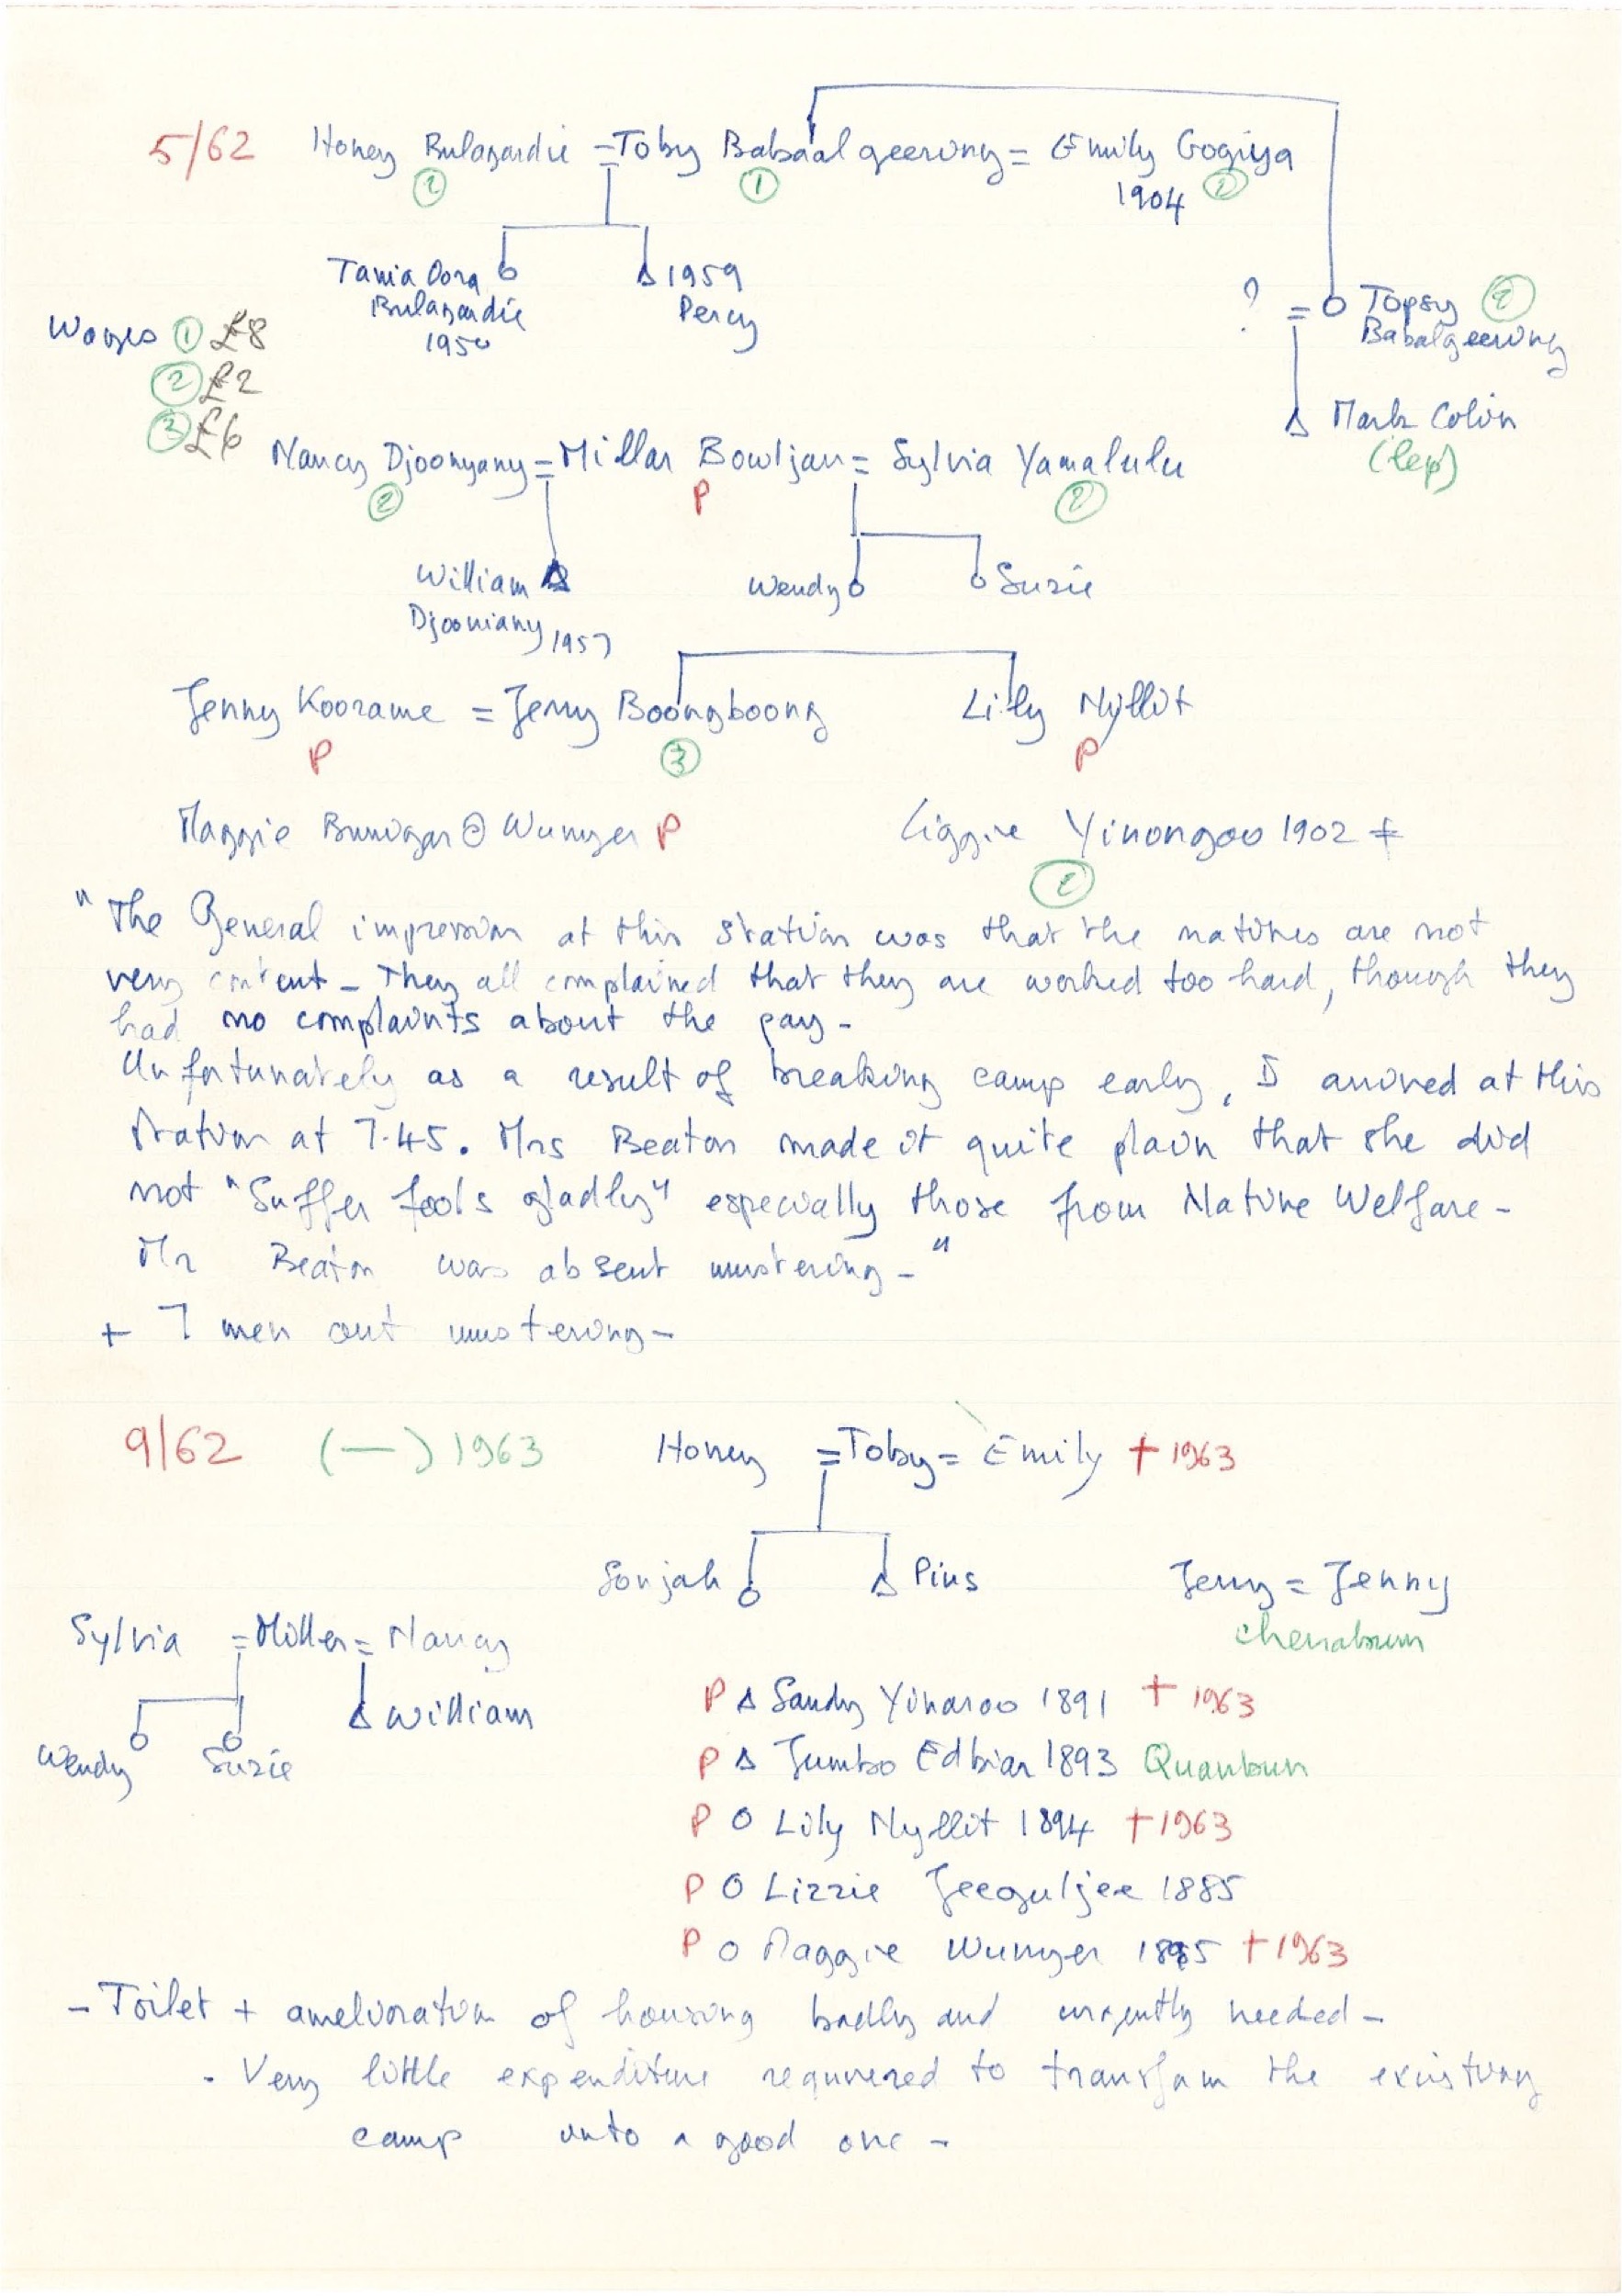 5/62 Honey Bulagardie = Toby Babaalgeerung = Emily Gogiya
② ① 1904 ②
Tania Dora 1959
Bulagardie Percy
1950
? = Topsy ②
Babalgeerung
Wages ① £8
② £2
③ £6
Mark Colin
(lep)
Nancy Djoonyany = Millar Bowljan = Sylvia Yamalulu
② P ②
William Wendy Suzie
Djooniany 1957
Jenny Koorame = Jerry Boongboong Lily Nyllit
P ③ P
Maggie Wunyer P Yinongoo 1902 +
②
"The General impression at this station was that the natives are not
very content - They all complained that they are worked too hard, though they
had no complaints about the pay -
Unfortunately as a result of breaking camp early, I arrived at this
station at 7.45. Mrs Beaton made it quite plain that she did
not "Suffer fools gladly" especially those from Native Welfare -
Mr Beaton was absent mustering - "
+ 7 men out mustering -
9/62 (—) 1963 Honey = Toby = Emily † 1963
Sonjah Pius Jerry = Jenny
Sylvia = Miller = Nancy
William
Wendy Suzie
P Sandy Yinaroo 1891 † 1963
P Jumbo Edbiar 1893 Quanbun
P Lily Nyllit 1894 † 1963
P Lizzie Jeeguljee 1885
P Maggie Wunyer 1885 † 1963
- Toilet + amelioration of housing badly and urgently needed -
- Very little expenditure requiered to transform the existing
camp into a good one -